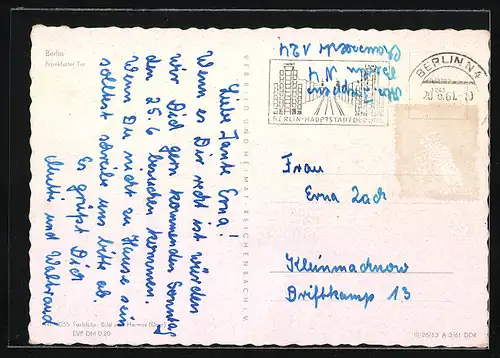 Berlin
Frankfurter Tor
Liebe Tante Erna!
Wenn es Dir recht ist würden
wir Dich gern kommenden Sonntag
den 25.6 besuchen kommen.
Wenn Du nicht zu Hause sein
solltest schreibe uns bitte ab.
Es grüßt Dich
Mutti und Waltraud
VERLAG BILD UND HEIMAT REICHENBACH I. V.
Berlin N4
BERLIN N4
BERLIN-HAUPTSTADT DER DDR
Frau
Erna Zach
Kleinmachnow
Driftkamp 13
Farbfoto: Bild und Heimat
EVP DM 0.20
III/26/13 A 3/61 DDR